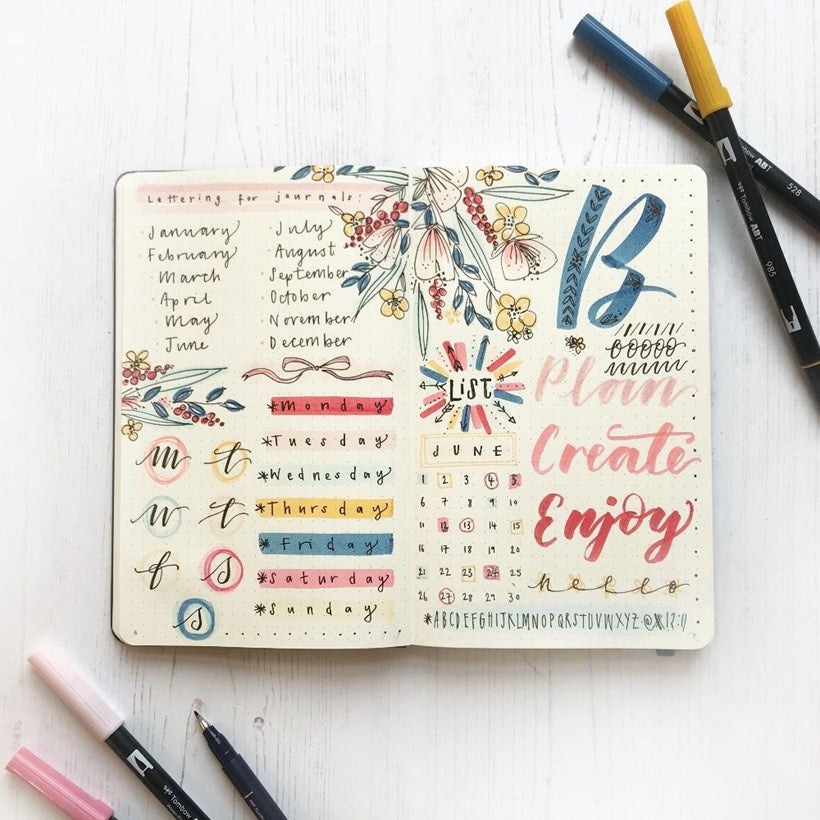 Lettering for journals:
January
February
March
April
May
June
July
August
September
October
November
December
m t
w t
f s
s
*Monday
*Tuesday
*Wednesday
*Thursday
*Friday
*Saturday
*Sunday
6
B
LIST
Plan
Create
Enjoy
hello
JUNE
1 2 3 4 5
6 7 8 9 10
11 12 13 14 15
16 17 18 19 20
21 22 23 24 25
26 27 28 29 30
*ABCDEFGHIJKLMNOPQRSTUVWXYZ
7
Tombow ABT
528
Tombow ABT
985
Tombow
Tombow